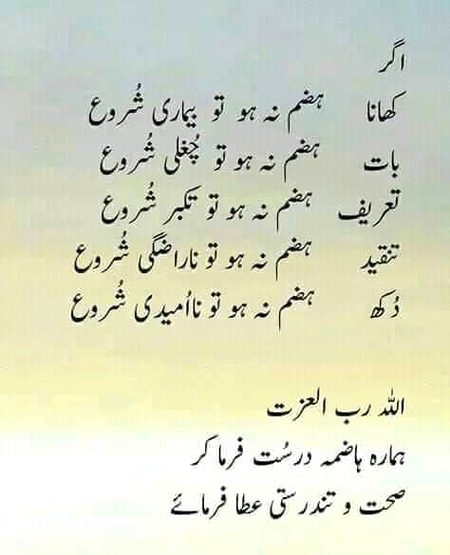 اگر
کھانا ہضم نہ ہو تو بیماری شُروع
بات ہضم نہ ہو تو چُغلی شُروع
تعریف ہضم نہ ہو تو تکبر شُروع
تنقید ہضم نہ ہو تو ناراضگی شُروع
دُکھ ہضم نہ ہو تو نااُمیدی شُروع
اللہ رب العزت
ہمارہ ہاضمہ درسُت فرما کر
صحت و تندرستی عطا فرمائے